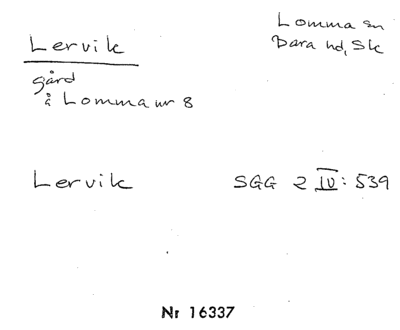 Lervik
Lomma sn
Bara hd, Sk
gård
å Lomma nr 8
Lervik
SGG 2 IV: 539
Nr 16337